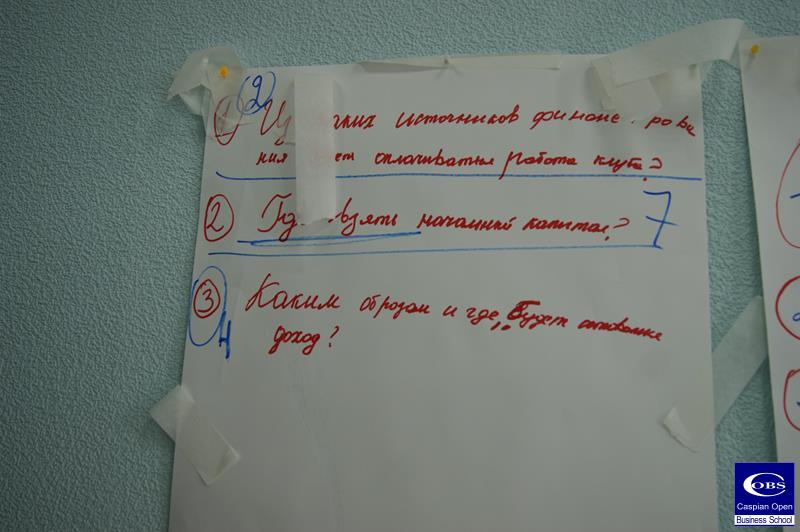 2
1) И ких источников финанс. рова
ния ет оплачиваться работа клуба?
2 Гд взять начальный капитал? 7
3 Каким образом и где, будет
4 доход?
COBS
Caspian Open
Business School